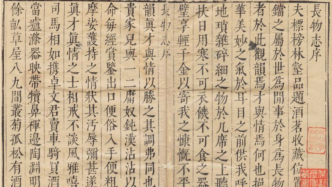 長物志序
夫標榜林壑品題酒茗收藏位置
鐺之屬於世爲閒事於身爲長物
者於此觀韻焉才與情焉何也挹
華美妙之氣於耳目之前供我呼
地瑣雜碎細之物於几席之上聽
挾日用寒不可衣饑不可食之器
璧享輕千金以寄我之慷慨不平
物志 序
眞韻眞才與眞情以勝之其調弗同也
貴家兒與一二庸奴鈍漢沾沾以
命每經賞鑒出口便俗入手便粗
摩娑護持之情狀其污辱彌甚遂
眞才眞情之士相戒不談風雅嘻
司馬相如攜卓文君賣車騎買酒
當罏滌器映帶犢鼻褌邊陶淵明
餘畝草屋八九間叢菊孤松有酒